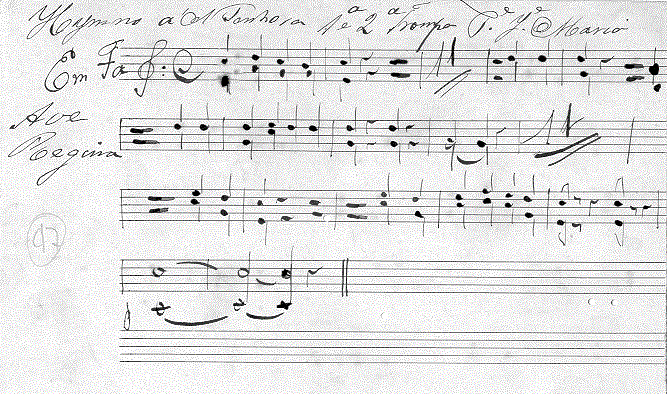 Hymno a N Senhora 1ª e 2ª Trompa Pe. Je. Mario
Em Fa
Ave
Regina
17